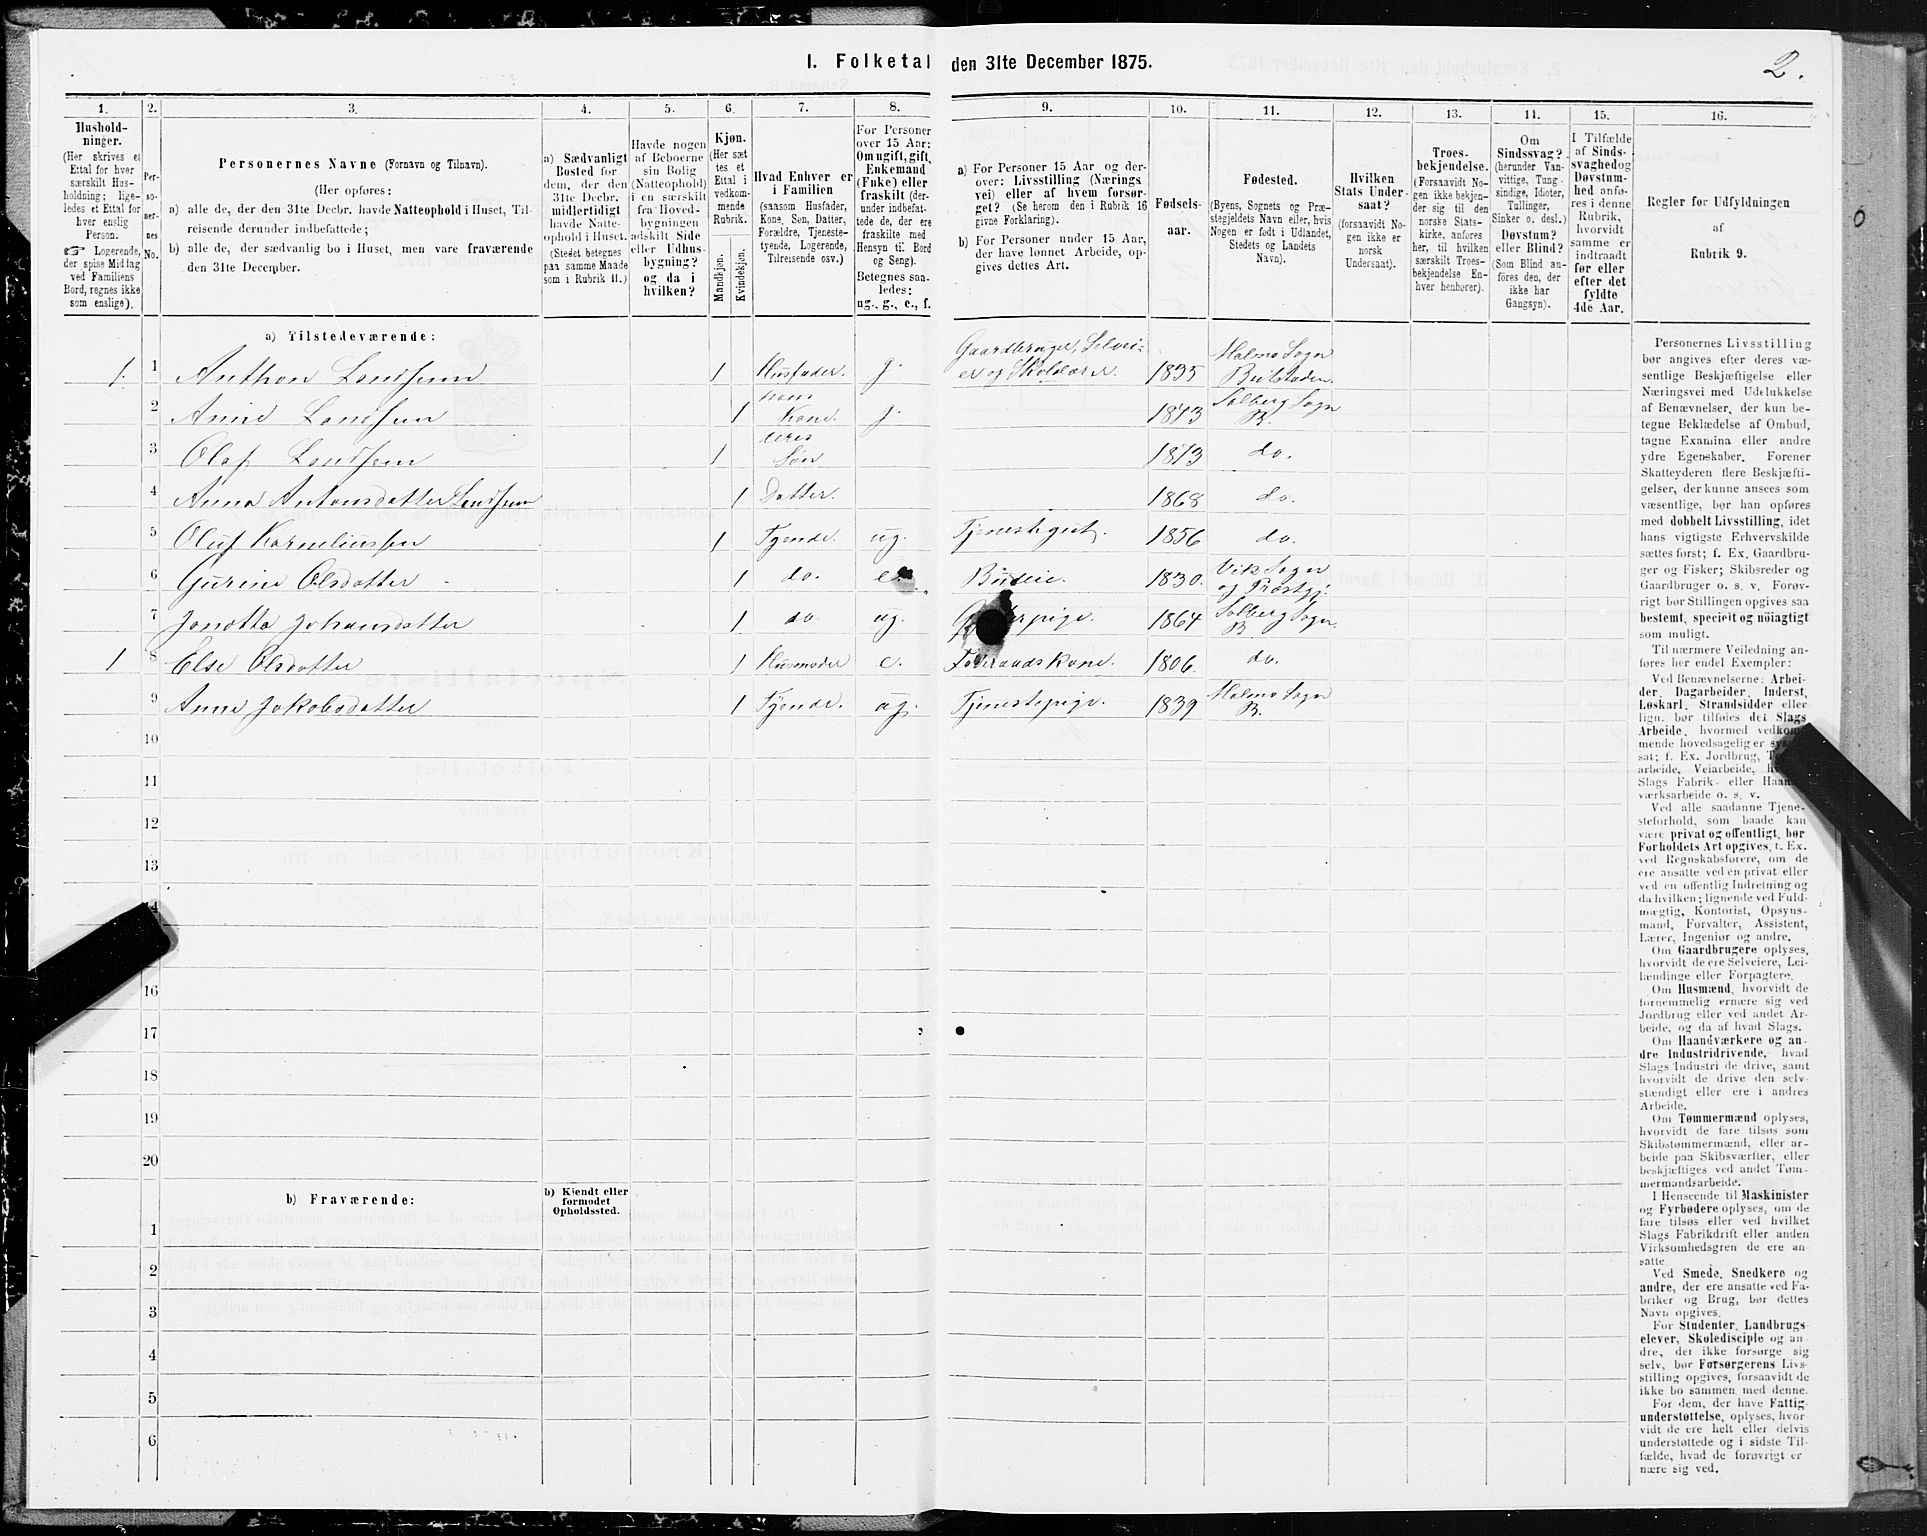 I. Folketal den 31te December 1875.
2.
1.
2.
3.
4.
5.
6.
7.
8.
9.
10.
11.
12.
13.
14.
15.
16.
Hushold-
ninger.
(Her skrives et
Ettal for hver
særskilt Hus-
holdning; lige-
ledes et Ettal for
hver enslig
Person.
☞ Logerende,
der spise Middag
ved Familiens
Bord, regnes ikke
som enslige).
Per-
so-
ner-
nes
No.
Personernes Navne (Fornavn og Tilnavn).
(Her opføres:
a) alle de, der den 31te Decbr. havde Natteophold i Huset, Til-
reisende derunder indbefattede;
b) alle de, der sædvanlig bo i Huset, men vare fraværende
den 31te December.
a) Sædvanligt
Bosted for
dem, der den
31te Decbr.
midlertidigt
havde Natte-
ophold i Huset.
(Stedet betegnes
paa samme Maade
som i Rubrik 11.)
Havde nogen
af Beboerne
sin Bolig
(Natteophold)
i en særskilt
fra Hoved-
bygningen
adskilt Side
eller Udhus-
bygning?
og da i
hvilken?
Kjøn.
(Her sæt-
tes et
Ettal i
vedkom-
mende
Rubrik.
Mandkjøn.
Kvindekjøn.
Hvad Enhver er
i Familien
(saasom Husfader,
Kone, Søn, Datter,
Forældre, Tjeneste-
tyende, Logerende,
Tilreisende osv.)
For Personer
over 15 Aar:
Om ugift, gift,
Enkemand
(Enke) eller
fraskilt (der-
under indbefat-
tede de, der ere
fraskilte med
Hensyn til Bord
og Seng).
Betegnes saa-
ledes:
ug., g., e., f.
a) For Personer 15 Aar og der-
over: Livsstilling (Nærings-
vei) eller af hvem forsør-
get? (Se herom den i Rubrik 16
givne Forklaring).
b) For Personer under 15 Aar,
der have lønnet Arbeide, op-
gives dettes Art.
Fødsels-
aar.
Fødested.
(Byens, Sognets og Præ-
stegjeldets Navn eller, hvis
Nogen er født i Udlandet,
Stedets og Landets
Navn).
Hvilken
Stats Under-
saat?
(forsaavidt No-
gen ikke er
norsk
Undersaat).
Troes-
bekjendelse.
(Forsaavidt No-
gen ikke bekjen-
der sig til den
norske Stats-
kirke, anføres
her, til hvilken
særskilt Troes-
bekjendelse En-
hver henhører).
Om
Sindssvag?
(herunder Van-
vittige, Tung-
sindige, Idioter,
Tullinger,
Sinker o. desl.)
Døvstum?
eller Blind?
(Som Blind an-
føres den, der
ikke har
Gangsyn).
I Tilfælde
af Sinds-
svaghed og
Døvstum-
hed anfø-
res i denne
Rubrik,
hvorvidt
samme er
indtraadt
før eller
efter det
fyldte
4de Aar.
Regler for Udfyldningen
af
Rubrik 9.
a) Tilstedeværende:
1. 1 Anthon Landsem 1 Husfader. g. Gaardbruger, Selvei-
er og Skolelærer. 1835 Malmo Sogn
Beitstaden.
2 Anne Landsem 1 hans
Kone. g. 1843 Solberg Sogn
B.
3 Olaf Landsem 1 deres
Søn 1873 do.
4 Anna Antonsdatter Landsem 1 Datter. 1868 do.
5 Oluf Korneliussen 1 Tyende. ug. Tjenestegut. 1856 do.
6 Gurine Olsdatter 1 do. e. Budeie. 1830. Vik Sogn
og Præstgj:
7 Jonetta Johansdatter 1 do. ug. 1864 Solberg Sogn.
B.
1 8 Else Olsdatter 1 Husmoder e. Føderaadskone. 1806. do.
9 Anne Jakobsdatter 1 Tyende. ug. Tjenestepige. 1839 Malmo Sogn
B.
10
11
12
13
14
16
17
18
19
20
b) Fraværende:
b) Kjendt eller
formodet
Opholdssted.
1
2
3
4
5
6
Personernes Livsstilling
bør angives efter deres væ-
sentlige Beskjæftigelse eller
Næringsvei med Udelukkelse
af Benævnelser, der kun be-
tegne Beklædelse af Ombud,
tagne Examina eller andre
ydre Egenskaber. Forener
Skatteyderen flere Beskjæfti-
gelser, der kunne ansees som
væsentlige, bør han opføres
med dobbelt Livsstilling, idet
hans vigtigste Erhvervskilde
sættes først; f. Ex. Gaardbru-
ger og Fisker; Skibsreder og
Gaardbruger o. s. v. Forøv-
rigt bør Stillingen opgives saa
bestemt, specielt og nøiagtigt
som muligt.
Til nærmere Veiledning an-
føres her endel Exempler:
Ved Benævnelserne: Arbei-
der, Dagarbeider, Inderst,
Løskarl, Strandsidder eller
lign. bør tilføies det Slags
Arbeide, hvormed vedkom-
mende hovedsagelig er
sat; f. Ex. Jordbrug,
arbeide, Veiarbeide,
Slags Fabrik- eller Haand-
værksarbeide o. s. v.
Ved alle saadanne Tjene-
steforhold, som baade kan
være privat og offentligt, bør
Forholdets Art opgives, t. Ex.
ved Regnskabsførere, om de
ere ansatte ved en privat eller
ved en offentlig Indretning og
da hvilken; lignende ved Fuld-
mægtig, Kontorist, Opsyns-
mand, Forvalter, Assistent,
Lærer, Ingeniør og andre.
Om Gaardbrugere oplyses,
hvorvidt de ere Selveiere, Lei-
lændinge eller Forpagtere.
Om Husmænd, hvorvidt de
fornemmelig ernære sig ved
Jordbrug eller ved andet Ar-
beide, og da af hvad Slags.
Om Haandværkere og an-
dre Industridrivende, hvad
Slags Industri de drive, samt
hvorvidt de drive den selv-
stændigt eller ere i andres
Arbeide.
Om Tømmermænd oplyses,
hvorvidt de fare tilsøs som
Skibstømmermænd, eller ar-
beide paa Skibsværfter, eller
beskjæftiges ved andet Tøm-
mermandsarbeide.
I Henseende til Maskinister
og Fyrbødere oplyses, om de
fare tilsøs eller ved hvilket
Slags Fabrikdrift eller anden
Virksomhedsgren de ere an-
satte.
Ved Smede, Snedkere og
andre, der ere ansatte ved Fa-
briker og Brug, bør dettes
Navn opgives.
For Studenter, Landbrugs-
elever, Skoledisciple og an-
dre, der ikke forsørge sig
selv, bør Forsørgerens Livs-
stilling opgives, forsaavidt de
ikke bo sammen med denne.
For dem, der have Fattig-
understøttelse, oplyses, hvor-
vidt de ere helt eller delvis
understøttede og i sidste Til-
fælde, hvad de forøvrigt er
nære sig ved.